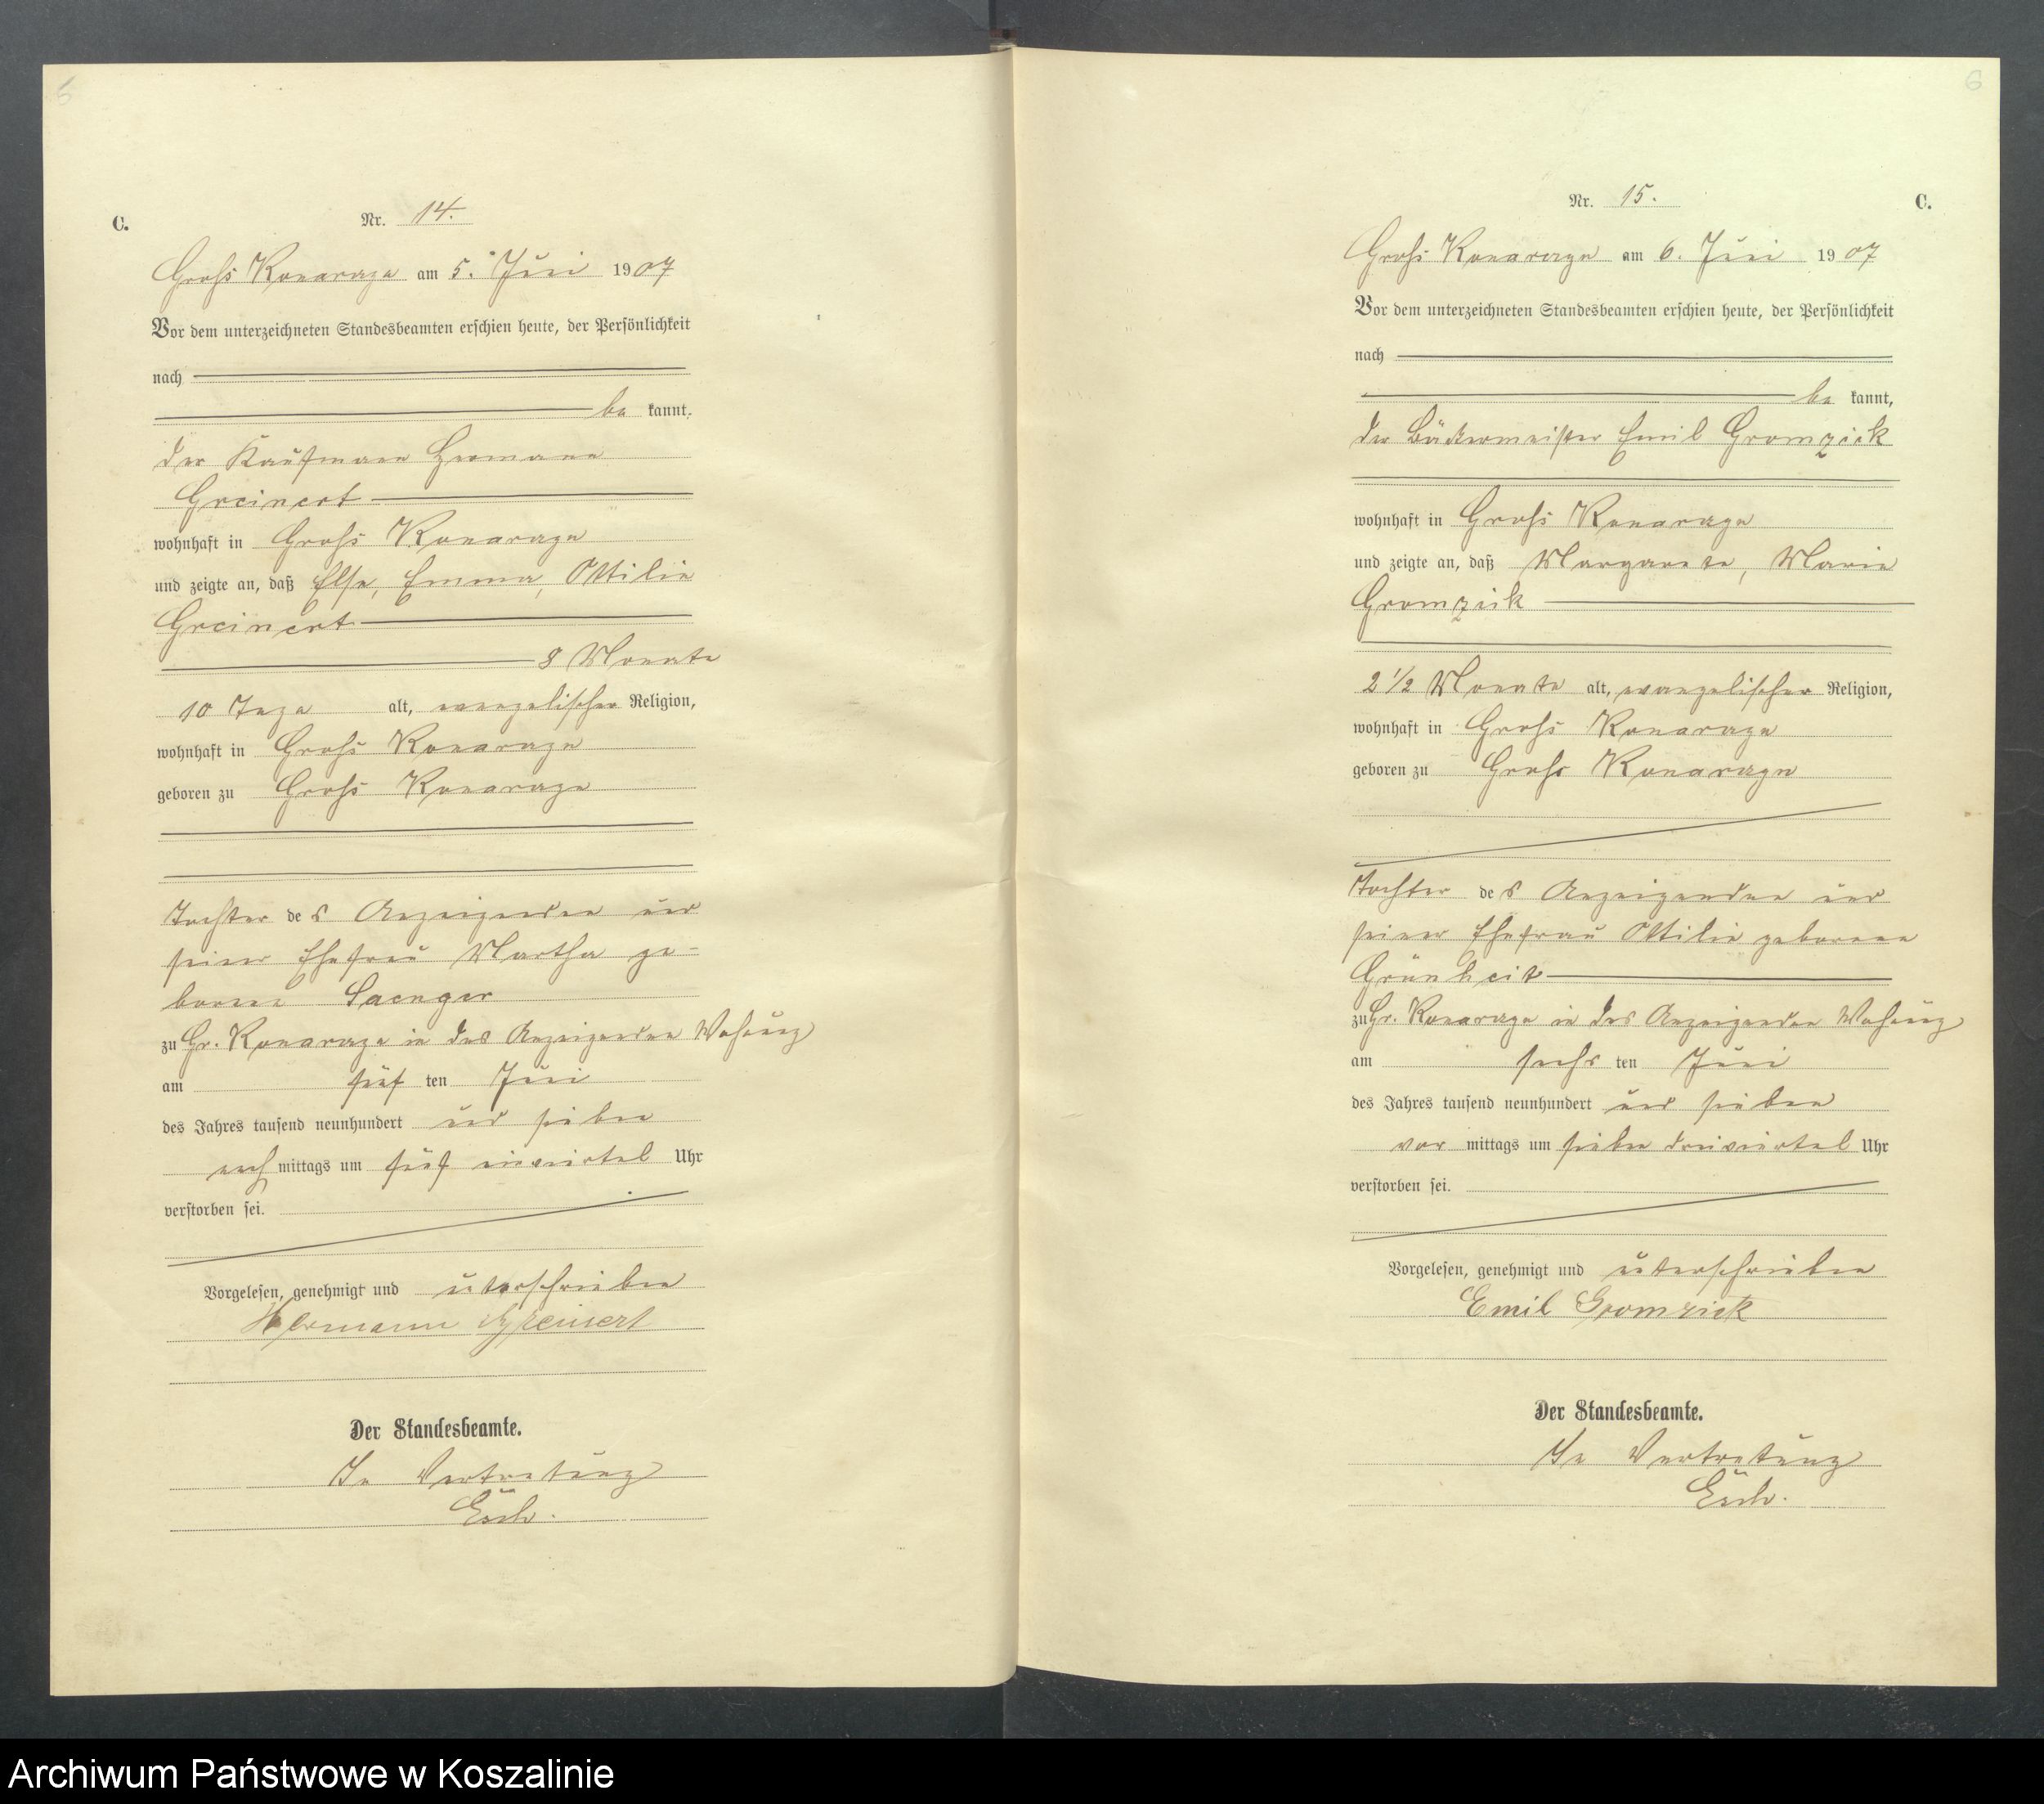 5
C.
Nr. 14.
Groß Konarzyn am 5. Juni 1907
Vor dem unterzeichneten Standesbeamten erschien heute, der Persönlichkeit
nach
be kannt,
der Kaufmann Hermann
Greinert
wohnhaft in Groß Konarzyn
und zeigte an, daß Else, Emma, Ottilie
Greinert
8 Monate
10 Tage alt, evangelischer Religion,
wohnhaft in Groß Konarzyn
geboren zu Groß Konarzyn
Tochter des Anzeigenden und
seiner Ehefrau Martha ge-
borene Saenger
zu Gr. Konarzyn in des Anzeigenden Wohnung
am fünf ten Juni
des Jahres tausend neunhundert und sieben
nach mittags um fünf einviertel Uhr
verstorben sei.
Vorgelesen, genehmigt und unterschrieben
Hermann Greinert
Der Standesbeamte.
In Vertretung
6
Nr. 15. C.
Groß Konarzyn am 6. Juni 1907
Vor dem unterzeichneten Standesbeamten erschien heute, der Persönlichkeit
nach
be kannt,
der Bäckermeister Emil Gromzick
wohnhaft in Groß Konarzyn
und zeigte an, daß Margarete, Marie
Gromzick
2 1/2 Monate alt, evangelischer Religion,
wohnhaft in Groß Konarzyn
geboren zu Groß Konarzyn
Tochter des Anzeigenden und
seiner Ehefrau Ottilie geborene
Grünheit
zu Gr. Konarzyn in des Anzeigenden Wohnung
am sechs ten Juni
des Jahres tausend neunhundert und sieben
vor mittags um sieben dreiviertel Uhr
verstorben sei.
Vorgelesen, genehmigt und unterschrieben
Emil Gromzick
Der Standesbeamte.
In Vertretung
Archiwum Państwowe w Koszalinie